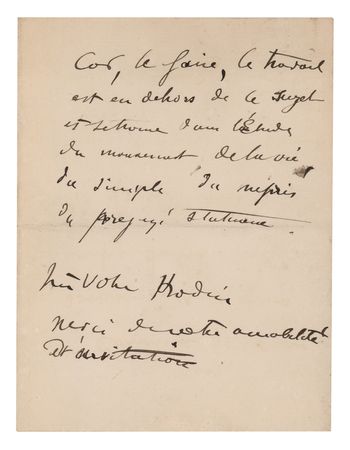 Car, le faire, le travail
est en dehors de ce sujet
et se trouve dans l'Étude
du mouvement de la vie
du simple du mépris
du préjugé statuaire.
Votre Rodin
merci de votre amabilité
et invitation